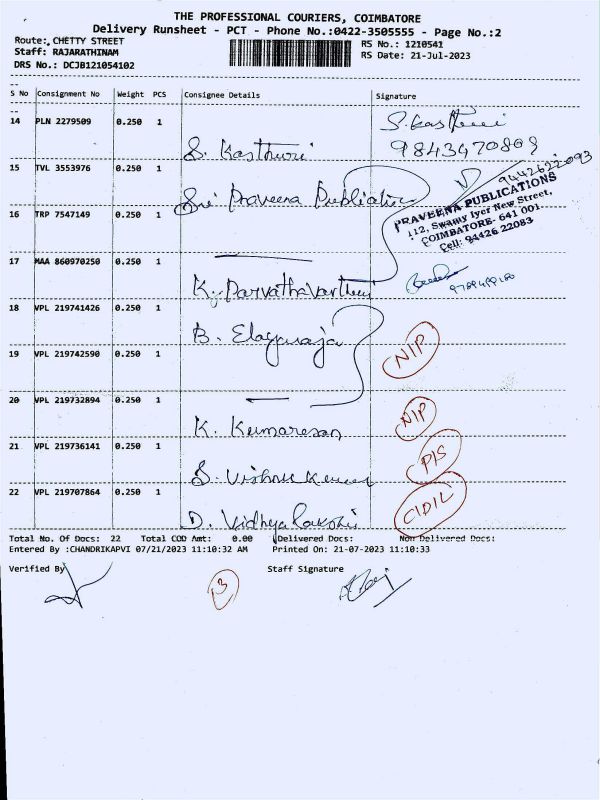 THE PROFESSIONAL COURIERS, COIMBATORE
Delivery Runsheet - PCT - Phone No.:0422-3505555 - Page No.:2
Route: CHETTY STREET
RS No.: 1210541
Staff: RAJARATHINAM
RS Date: 21-Jul-2023
DRS No.: DCJB121054102
S No Consignment No Weight PCS Consignee Details Signature
14 PLN 2279509 0.250 1
S. Kasthuri
9843470808
S. Kasthuri
15 TVL 3553976 0.250 1
Sri Praveena Publication
9442622093
PRAVEENA PUBLICATIONS
112, Swamy Iyer New Street,
COIMBATORE- 641 001.
Cell: 94426 22083
16 TRP 7547149 0.250 1
17 MAA 860970250 0.250 1
K. Parvathavartheni
18 VPL 219741426 0.250 1
B. Elayaraja
19 VPL 219742590 0.250 1
NIP
20 VPL 219732894 0.250 1
K. Kumaresan
NIP
21 VPL 219736141 0.250 1
S. Vishnu Kumar
P/S
22 VPL 219707864 0.250 1
D. Vidhya Lakshmi
C/D/L
Total No. Of Docs: 22 Total COD Amt: 0.00 Delivered Docs: Non Delivered Docs:
Entered By :CHANDRIKAPVI 07/21/2023 11:10:32 AM Printed On: 21-07-2023 11:10:33
Verified By
Staff Signature